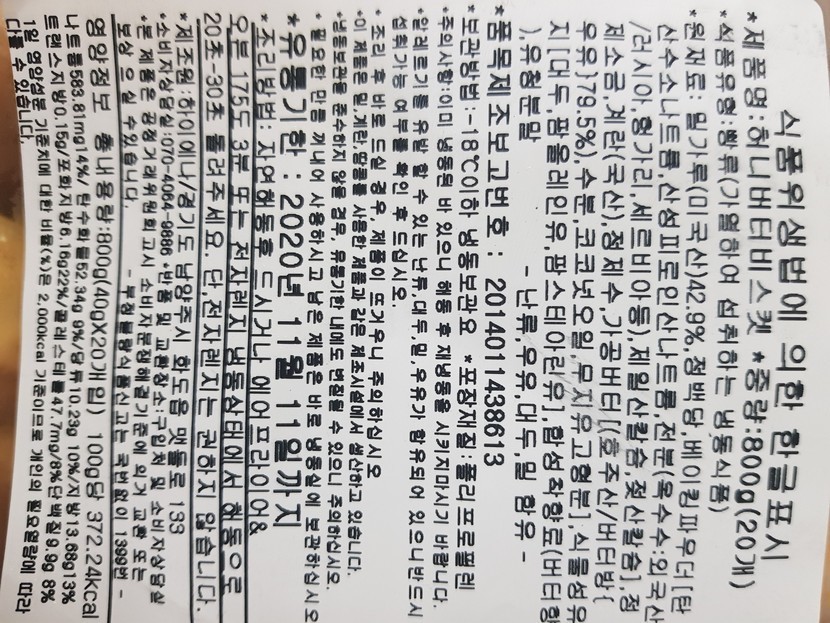 식품위생법에 의한 한글표시
*제품명:허니버터비스켓 *중량:800g(20개)
*식품유형:빵류(가열하여 섭취하는 냉동식품)
*원재료: 밀가루(미국산)42.9%,정백당,베이킹파우더[탄
산수소나트륨,산성피로인산나트륨,전분(옥수수:외국산
/러시아,헝가리,세르비아등),제일산칼슘,젖산칼슘],정
제소금,계란(국산),정제수,가공버터[(호주산/버터방{
우유}79.5%),수분,코코넛오일,무지유고형분],식물성유
지[대두,팜올레인유,팜스테아린유],합성착향료(버터향
),유청분말
- 난류,우유,대두,밀 함유 -
*품목제조보고번호 : 201401143861​3
*보관방법:-18℃이하 냉동보관요 *포장재질:폴리프로필렌
*주의사항:이미 냉동된 바 있으니 해동 후 재냉동을 시키지마시기 바랍니다.
*알레르기를 유발 할 수 있는 난류,대두,밀,우유가 함유되어 있으니반드시
섭취가능 여부를 확인 후 드십시오.
* 조리 후 바로 드실 경우, 제품이 뜨거우니 주의하십시오
*이 제품은 밀,계란,땅콩을 사용한 제품과 같은 제조시설에서 생산하고 있습니다.
*냉동보관을 준수하지 않을 경우, 유통기한 내에도 변질될 수 있으니 주의하십시오.
* 필요한 만큼 꺼내어 사용하시고 남은 제품은 바로 냉동실에 보관하십시오
*유통기한 : 2020년 11월 11일까지
*조리방법: 자연해동후 드시거나 에어프라이어&
오븐 175도 3분 또는 전자레지 냉동상태에서 해동으로
20초-30초 돌려주세요 단,전자레지는 권하지 않습니다.
*제조원:하이에나/경기도 남양주시 화도읍 갯돌로 133
*소비자상담실:070-4064-9886 *반품 및 교환장소:구입처 및 소비자상담실
*본 제품은 공정거래위원회고시 소비자분쟁해결기준에 의거 교환 또는
보상 으실 수 있습니다. - 부정불량식품신고는 국번없이 1399번 -
영양정보 총내용량:800g(40gX20개입) 100g당 372.24kcal
나트륨583.81mg14%/ 탄수화물52.34g 9%/당류10.23g 10%/지방13.68g13%
트랜스지방0.15g/포화지방6.16g22%/콜레스테롤47.7mg/8%단백질9.9g 8%
1일 영양성분 기준치에 대한 비율(%)은 2,000kcal 기준이므로 개인의 필요열량에 따라
다를 수 있습니다.